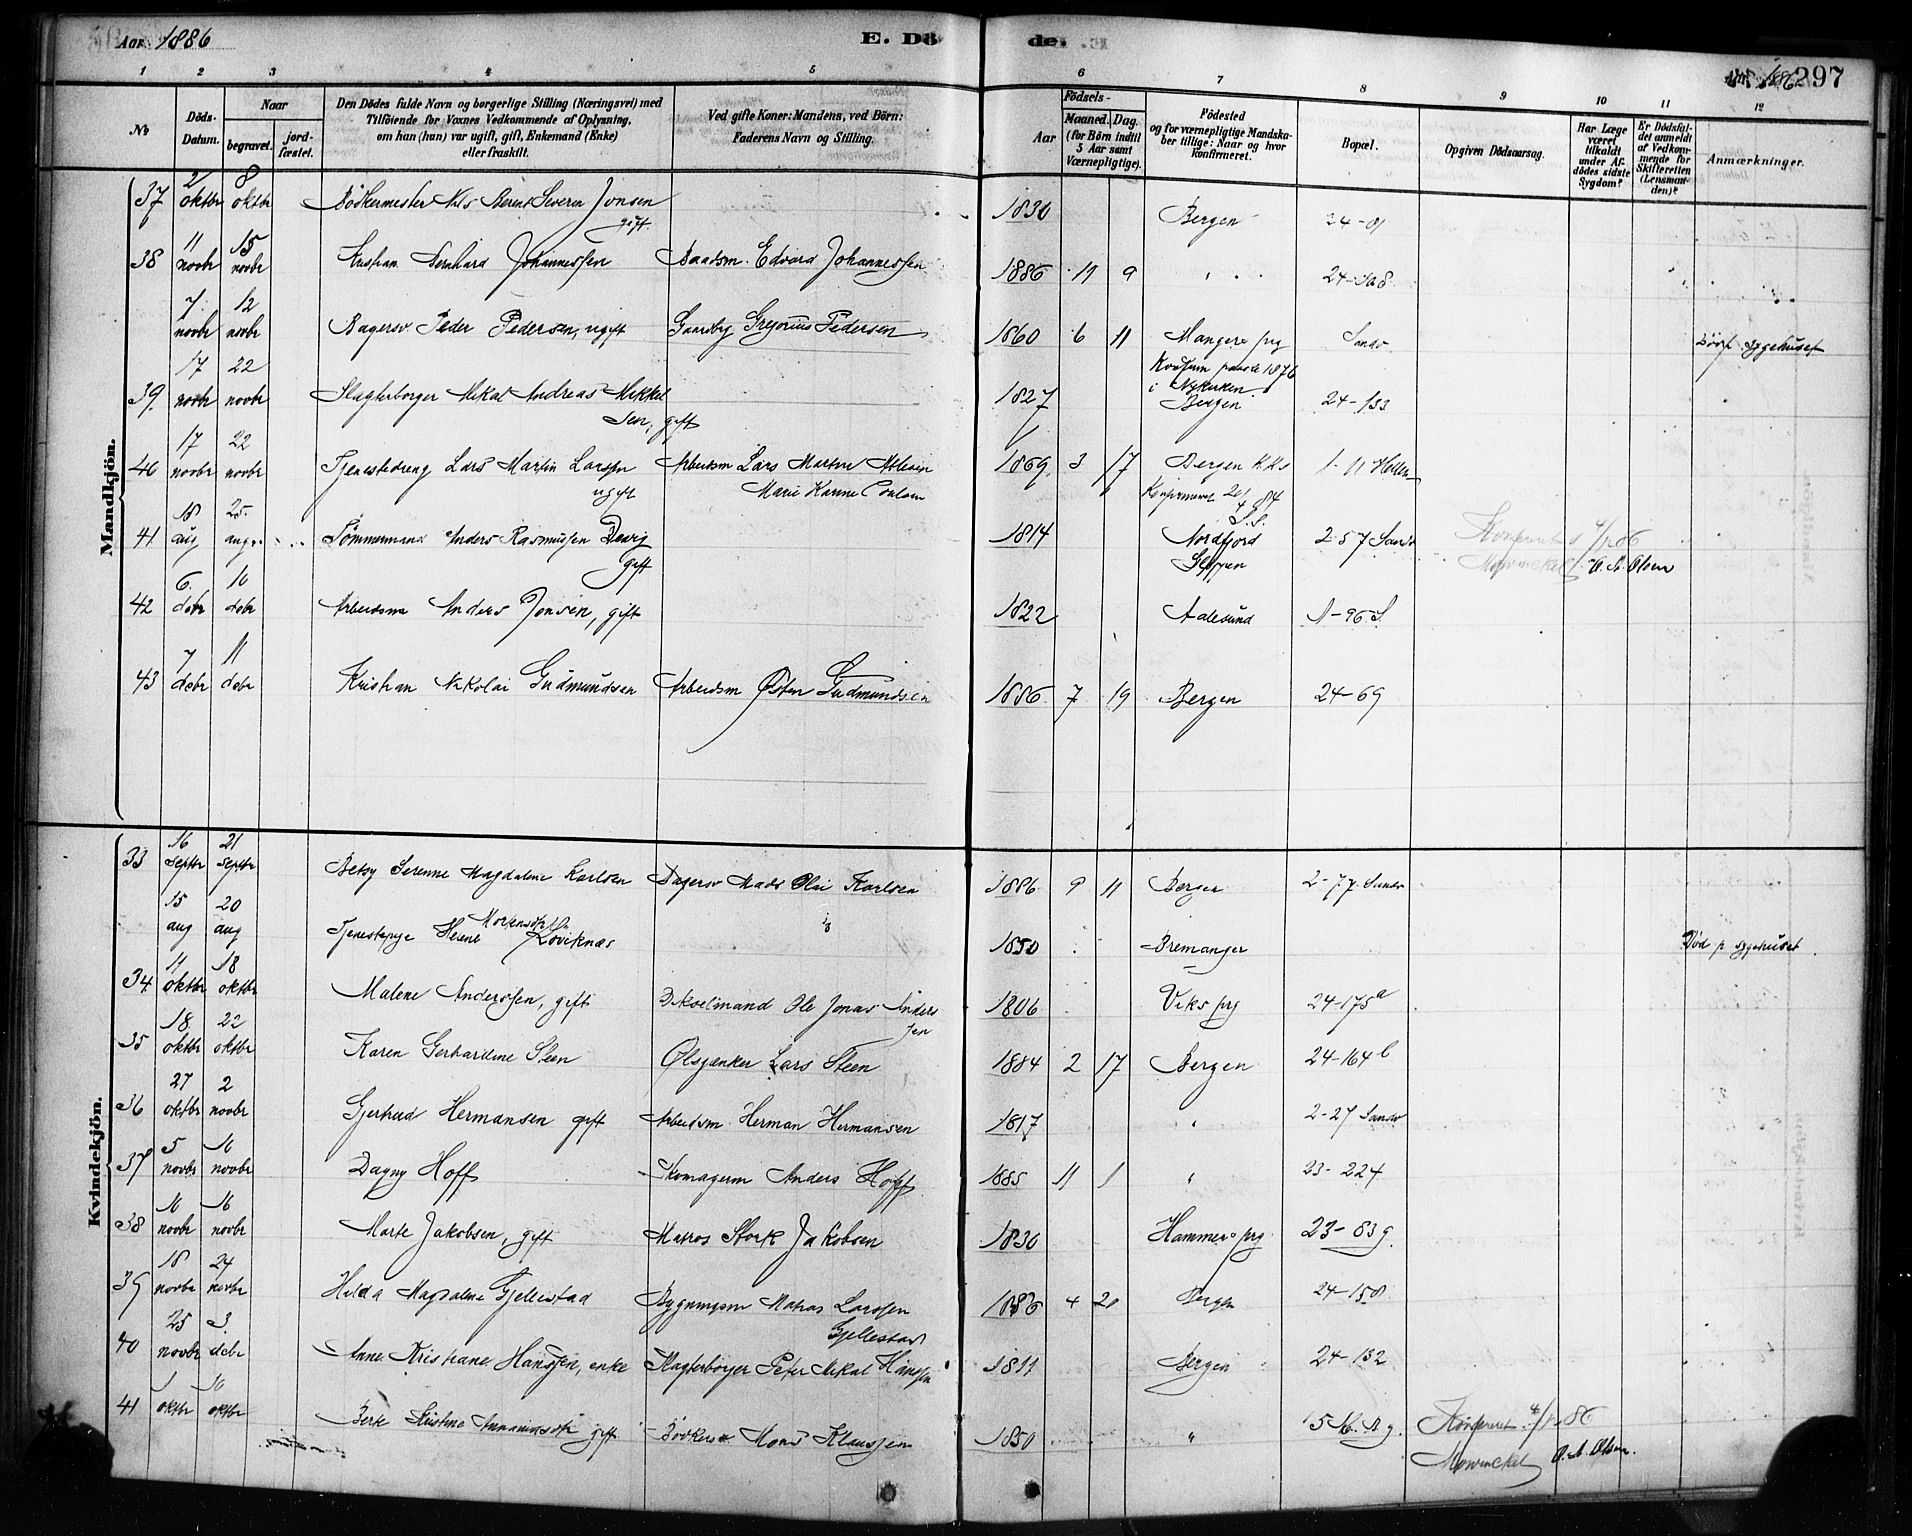 Aar 1886 E. Dö de. 297
1 2 3 4 5 6 7 8 9 10 11 12
No
Döds-Datum.
Naar
begravet.
jordfæstet.
Den Dödes fulde Navn og borgerlige Stilling (Næringsvei) med
Tilföiende for Voxnes Vedkommende af Oplysning,
om han (hun) var ugift, gift, Enkemand (Enke)
eller fraskilt.
Ved gifte Koner: Mandens, ved Börn:
Faderens Navn og Stilling.
Födsels-
Aar
Maaned. Dag.
(for Börn indtil
5 Aar samt
Værnepligtige).
Födested
og for værnepligtige Mandska-
ber tillige: Naar og hvor
konfirmeret.
Bopæl.
Opgiven Dödsaarsag.
Har Læge
været
tilkaldt
under Af-
dödes sidste
Sygdom?
Er Dödsfal-
det anmeldt
af Vedkom-
mende for
Skifteretten
(Lensman-
den)?
Anmærkninger.
Mandkjön.
37 2 oktbr 8 oktbr Bödkermester Nils Berent Severin Jonsen gift 1830 Bergen 24-81
38 11 novbr 15 novbr Kristian Bernhard Johannessen Baadsm. Edvard Johannessen 1886 9 24-
7 novbr 12 novbr Bagersv. Peder Pedersen, ugift Gaardbr Gregorius Pedersen 1860 6 11 Mangers prg Sandv sygehuset
Konfirm 1876
i Nykirken
39. 17 novbr 22 novbr Slagterborger Mikal Andreas Mikkel
sen, gift 1827 Bergen 24-133
40 17 novbr 22 novbr Tjenestedreng Lars Martin Larsen
ugift Arbeidsm Lars Martin
Marie Karine 1869 3 17 Bergen
Konfirmeret 84
41 18 aug 25 aug Tömmermand Anders Rasmussen
gift 1814 Nordfjord
Gloppen 2-57 Sandv Konfereret 4/1 86
Mowinckel O. A. Olsen
42 6 debr 10 debr Arbeidsm Anders Jonsen, gift 1822 Aalesund 1-96 S
43 7 debr 11 debr Kristian Nikolai Gudmundsen Arbeidsm Östen Gudmundsen 1886 7 19 Bergen 24-69
Kvindekjön.
33 16 septbr 21 septbr Betsy Serenne Magdalene Karlsen Dagersv Mads Olai Karlsen 1886 9 11 Bergen 2-77 Sandv
15 aug 20 aug Tjenestepige Helene Mortensdtr 1850 Bremanger Död p sygehuset
34 11 oktbr 18 oktbr Malene Anderssen, gift Dikselmand Ole Jonas Anders
sen 1806 Viks prg 24-175a
35 18 oktbr 22 oktbr Karen Gerhardine Steen Ölsjænker Lars Steen 1884 2 17 Bergen 24-164b
36 27 oktbr 2 novbr Gjertrud Hermansen gift Arbeidsm Herman Hermansen 1817 " 2-27 Sandv
37 5 novbr 10 novbr Dagny Hoff Skomagerm Anders Hoff 1885 11 1 " 23-224
38 10 novbr 16 novbr Marte Jakobsen, gift Matros Stork Jakobsen 1830 Hammers prg 23-83g
39 18 novbr 24 novbr Hilda Magdalene Gjellestad Bygningsm Matias Larssen
Gjellestad 1886 4 20 Bergen 24-158
40 25 novbr 3 debr Anne Kristiane Hanssen, enke Slagterborger Peter Mikal Hanssen 1811 Bergen 24-132
41 1 oktbr 10 oktbr Berte Kristine gift Bödkersv. Mons Klaussen 1850 " Konfereret 4/1 86
Mowinckel O. A. Olsen.